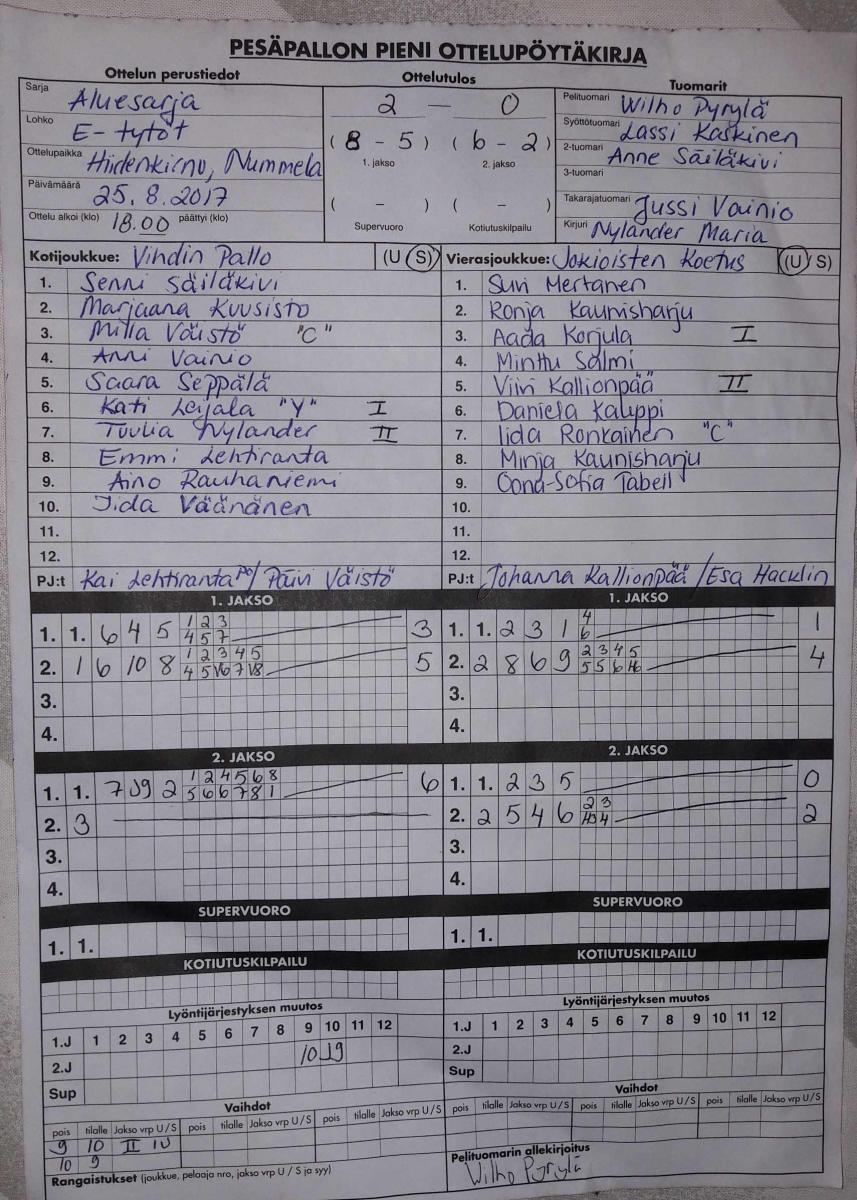 PESÄPALLON PIENI OTTELUPÖYTÄKIRJA
Ottelun perustiedot Ottelutulos Tuomarit
Sarja Aluesarja
Lohko E-tytöt
Ottelupaikka Hiidenkirnu, Nummela
Päivämäärä 25.8.2017
Ottelu alkoi (klo) 18.00 päättyi (klo)
2 — 0
(8 - 5) (6 - 2)
1. jakso 2. jakso
( - ) ( - )
Supervuoro Kotiutuskilpailu
Pelituomari Wilho Pyrylä
Syöttötuomari Lassi Kaskinen
2-tuomari Anne Säiläkivi
3-tuomari
Takarajatuomari Jussi Vainio
Kirjuri Nylander Maria
Kotijoukkue: Vihdin Pallo (U S)
1. Senni Säiläkivi
2. Marjaana Kuusisto
3. Milla Väistö "C"
4. Anni Vainio
5. Saara Seppälä
6. Kati Leijala "Y" I
7. Tuulia Nylander II
8. Emmi Lehtiranta
9. Aino Rauhaniemi
10. Iida Väänänen
11.
12.
PJ:t Kai Lehtiranta / Päivi Väistö
Vierasjoukkue: Jokioisten Koetus (U S)
1. Suvi Mertanen
2. Ronja Kaunisharju
3. Aada Korjula I
4. Minttu Salmi
5. Viivi Kallionpää II
6. Daniela Kauppi
7. Iida Ronkainen "C"
8. Minja Kaunisharju
9. Oona-Sofia Tabell
10.
11.
12.
PJ:t Johanna Kallionpää / Esa Hacklin
1. JAKSO 1. JAKSO
1 2 3
1. 1. 6 4 5 4 5 7 3
1 2 3 4 5
2. 1 6 10 8 5
3.
4.
4
1. 1. 2 3 1 6 1
2 3 4 5
2. 2 8 6 9 5 5 6 4
3.
4.
2. JAKSO 2. JAKSO
1 2 4 5 6 8
1. 1. 7 9 2 5 6 6 7 8 1 6
2. 3
3.
4.
1. 1. 2 3 5 0
2 3
2. 2 5 4 6 4 2
3.
4.
SUPERVUORO SUPERVUORO
1. 1. 1. 1.
KOTIUTUSKILPAILU KOTIUTUSKILPAILU
Lyöntijärjestyksen muutos Lyöntijärjestyksen muutos
1.J 1 2 3 4 5 6 7 8 9 10 11 12
2.J 10 9
Sup
1.J 1 2 3 4 5 6 7 8 9 10 11 12
2.J
Sup
Vaihdot Vaihdot
pois tilalle Jakso vrp U / S pois tilalle Jakso vrp U / S pois tilalle Jakso vrp U / S
9 10 II
10 9
pois tilalle Jakso vrp U / S pois tilalle Jakso vrp U / S pois tilalle Jakso vrp U / S
Rangaistukset (joukkue, pelaaja nro, jakso vrp U / S ja syy)
Pelituomarin allekirjoitus
Wilho Pyrylä